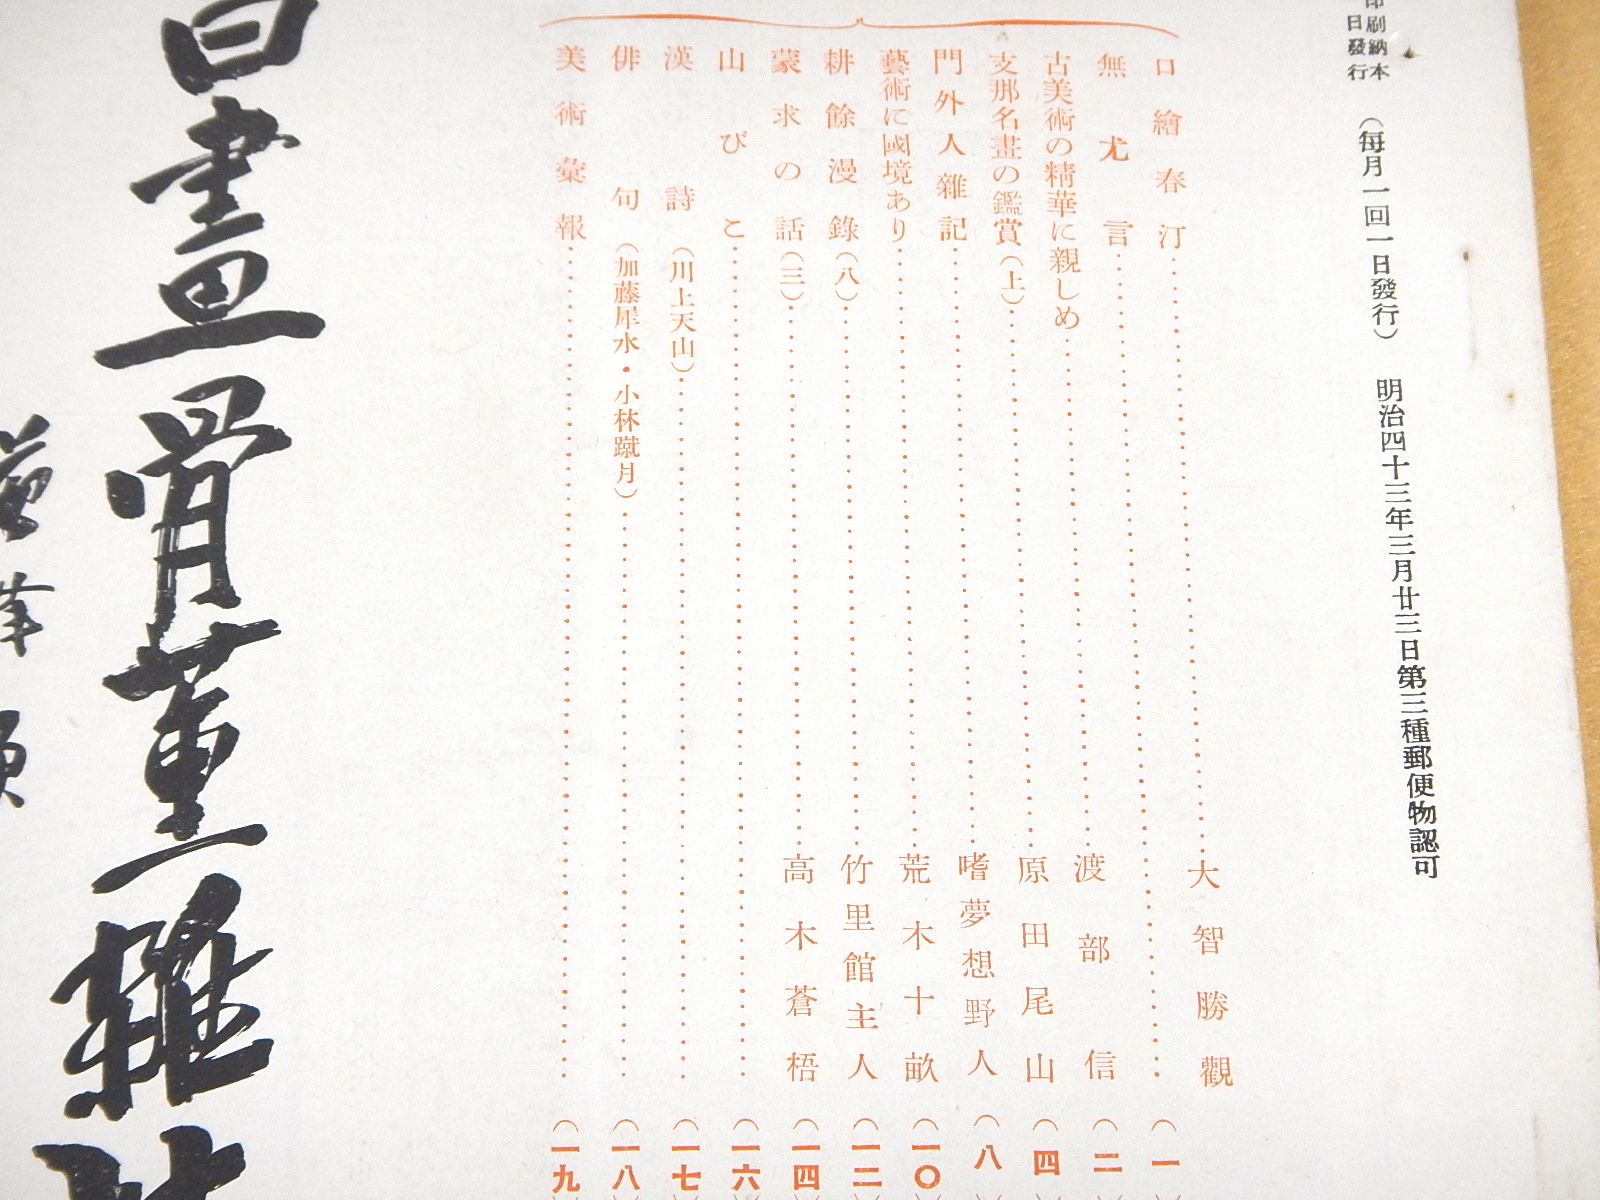 印刷納本
日發行
（每月一回一日發行） 明治四十三年三月廿三日第三種郵便物認可
口繪春汀 大智勝觀
無尤言 （一
古美術の精華に親しめ 渡部信 （二
支那名畫の鑑賞（上） 原田尾山 （四
門外人雜記 嗜夢想野人 （八
藝術に國境あり 荒木十畝 （一〇
耕餘漫錄（八） 竹里館主人 （一二
蒙求の話（三） 高木蒼梧 （一四
山びこ （一六
漢詩（川上天山） （一七
俳句（加藤犀水・小林蹴月） （一八
美術彙報 （一九
畫骨董雜